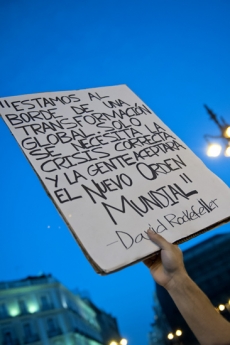 "ESTAMOS AL
BORDE DE UNA
TRANSFORMACIÓN
GLOBAL. SOLO
SE NECESITA LA
CRISIS CORRECTA
Y LA GENTE ACEPTARÁ
EL NUEVO ORDEN
MUNDIAL"
-David Rockefeller